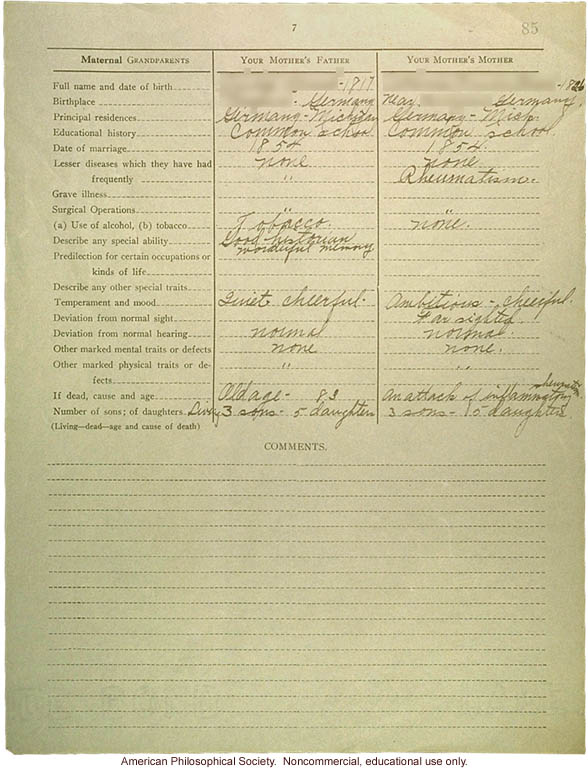 7
85
Maternal GRANDPARENTS YOUR MOTHER'S FATHER YOUR MOTHER'S MOTHER
Full name and date of birth -1817 -1826
Birthplace Germany May. Germany.
Principal residences Germany - Michigan Germany - Mich.
Educational history Common school Common school.
Date of marriage 1854 1854.
Lesser diseases which they have had none none
frequently " Rheumatism.
Grave illness
Surgical Operations " "
(a) Use of alcohol, (b) tobacco Tobacco. none.
Describe any special ability Good historian
wonderful memory
Predilection for certain occupations or
kinds of life
Describe any other special traits
Temperament and mood Quiet cheerful. Ambitious - cheerful.
Deviation from normal sight Far sighted.
Deviation from normal hearing normal normal.
Other marked mental traits or defects none none.
Other marked physical traits or de- " "
fects
If dead, cause and age Old age - 83 An attack of inflammatory rheumatism
Number of sons; of daughters Living 3 sons - 5 daughters 3 sons - 5 daughters.
(Living—dead—age and cause of death)
COMMENTS.
American Philosophical Society. Noncommercial, educational use only.